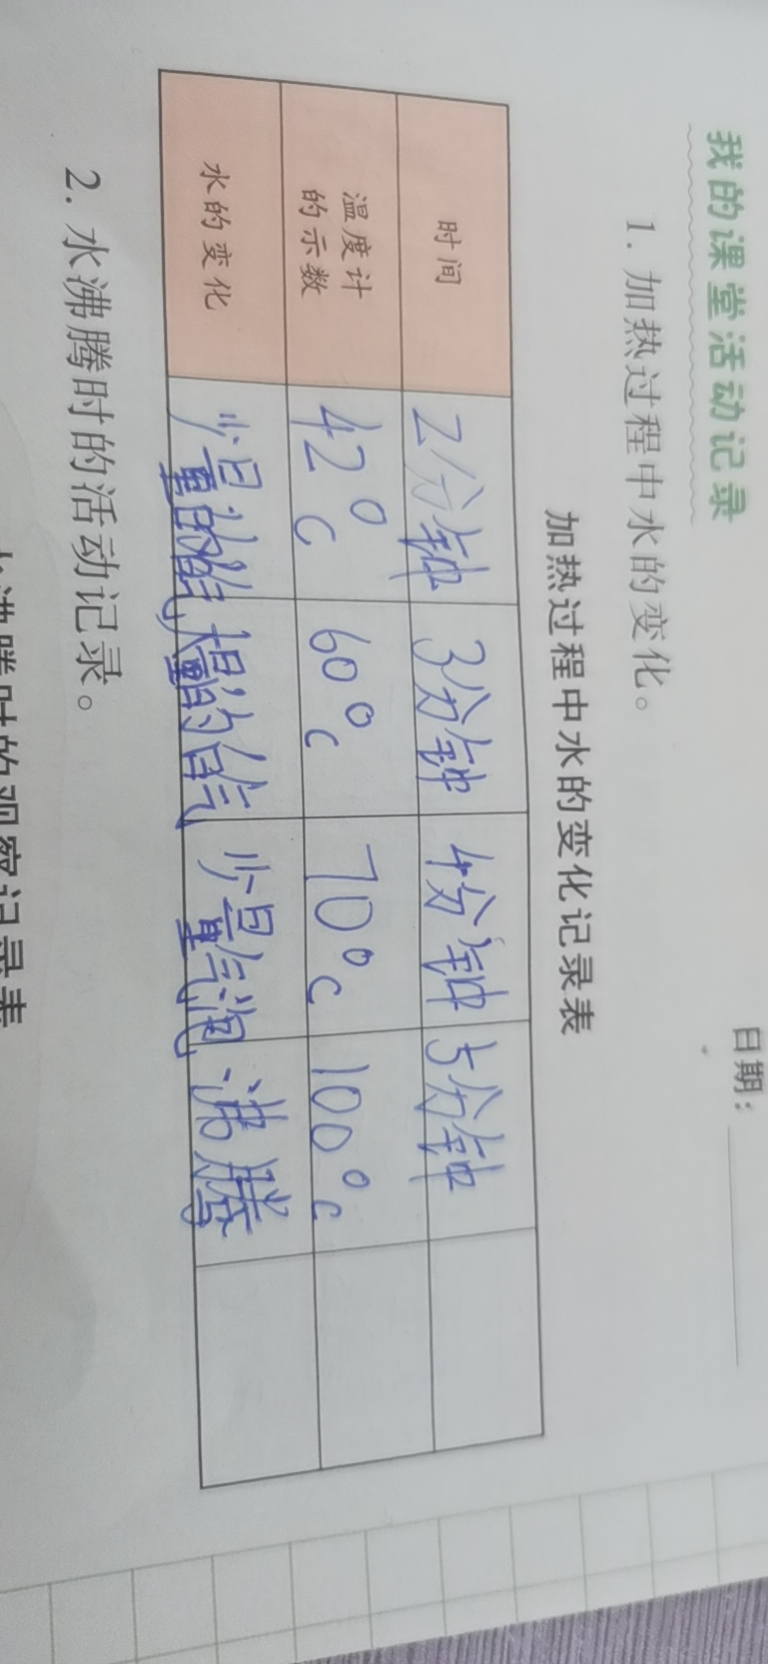 我的课堂活动记录
日期：
1. 加热过程中水的变化。
加热过程中水的变化记录表
时间 2分钟 3分钟 4分钟 5分钟
温度计的示数 42°C 60°C 70°C 100°C
水的变化 少量的白气 大量的白气 少量气泡 沸腾
2. 水沸腾时的活动记录。
水沸腾时的观察记录表